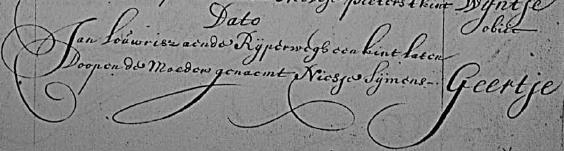 Pieters kint Wijntje
obiit
Dato
Jan Louwrisz aende Rijperwegh een kint laten
Doopen de Moeder genaemt Niesje Sijmens - Geertje